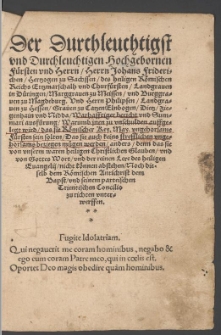 Der Durchleuchtigst
vnd Durchleuchtigen Hochgebornen
Fürsten vnd Herrn / Herrn Johans Frideri-
chen / Hertzogen zu Sachssen / des heiligen Römischen
Reichs Ertzmarschalh vnd Churfürsten / Landgrauen
in Düringen / Marggrauen zu Meissen / vnd Burggra-
uen zu Magdeburg. Vnd Herrn Philipsen / Landgra-
uen zu Hessen / Grauen zu Catzenelnbogen / Dietz / Zie-
genhain vnd Nidda / Warhafftiger bericht vnd Sum-
mari ausfürung / Warumb
das sie Römischer Kei. May. vngehorsame
Fürsten sein solten
von vnserm waren heiligen Christlichen Glauben / vnd
von Gottes Wort / vnd der reinen Lere des heiligen
Euangelij nicht
selb dem Römischen Antichrist dem
Bapst / vnd seinem parteischen
Trientischen Concilio
zu richten vnter-
werffen.
Fugite Idolatriam.
Qui negauerit me coram hominibus, negabo &
ego eum coram Patre meo, qui in cœlis est.
Oportet Deo magis obedire quàm hominibus.